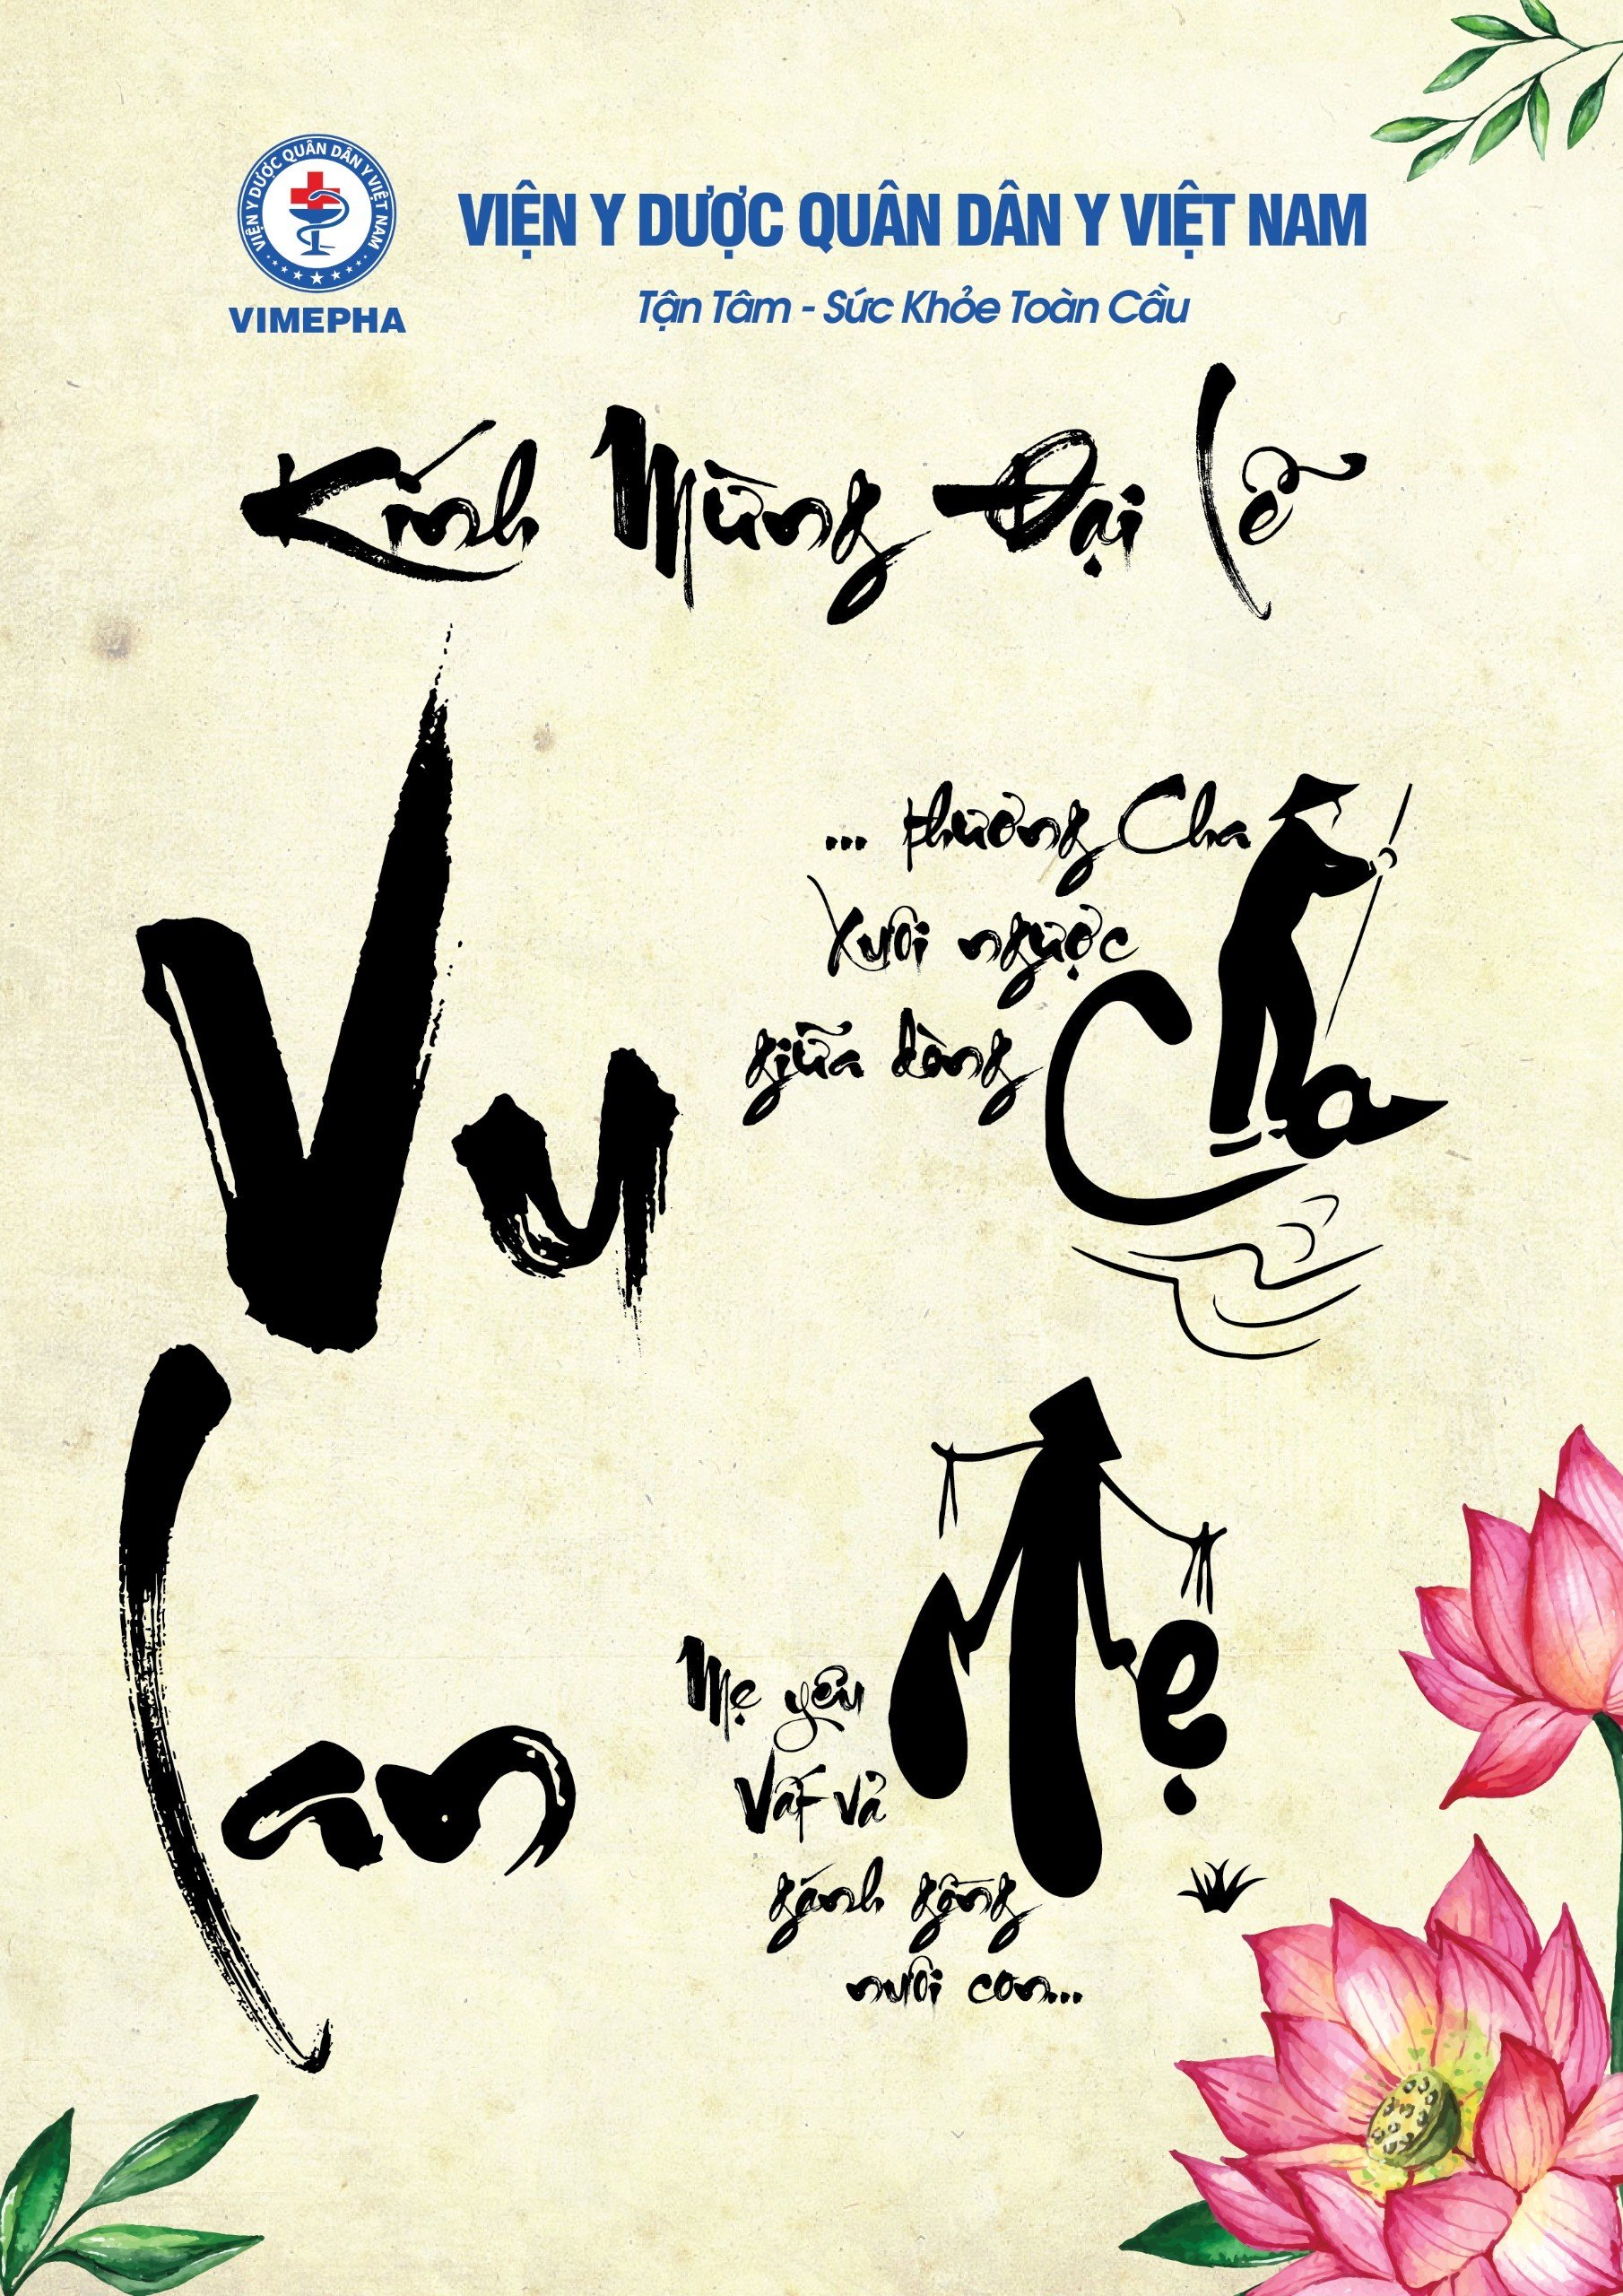 VIỆN Y DƯỢC QUÂN DÂN Y VIỆT NAM
VIMEPHA
VIỆN Y DƯỢC QUÂN DÂN Y VIỆT NAM
Tận Tâm - Sức Khỏe Toàn Cầu
Kính Mừng Đại lễ
Vu
lan
... thương Cha
Xuôi ngược
giữa dòng
Cha
Mẹ
Mẹ yêu
Vất vả
gánh gồng
nuôi con...